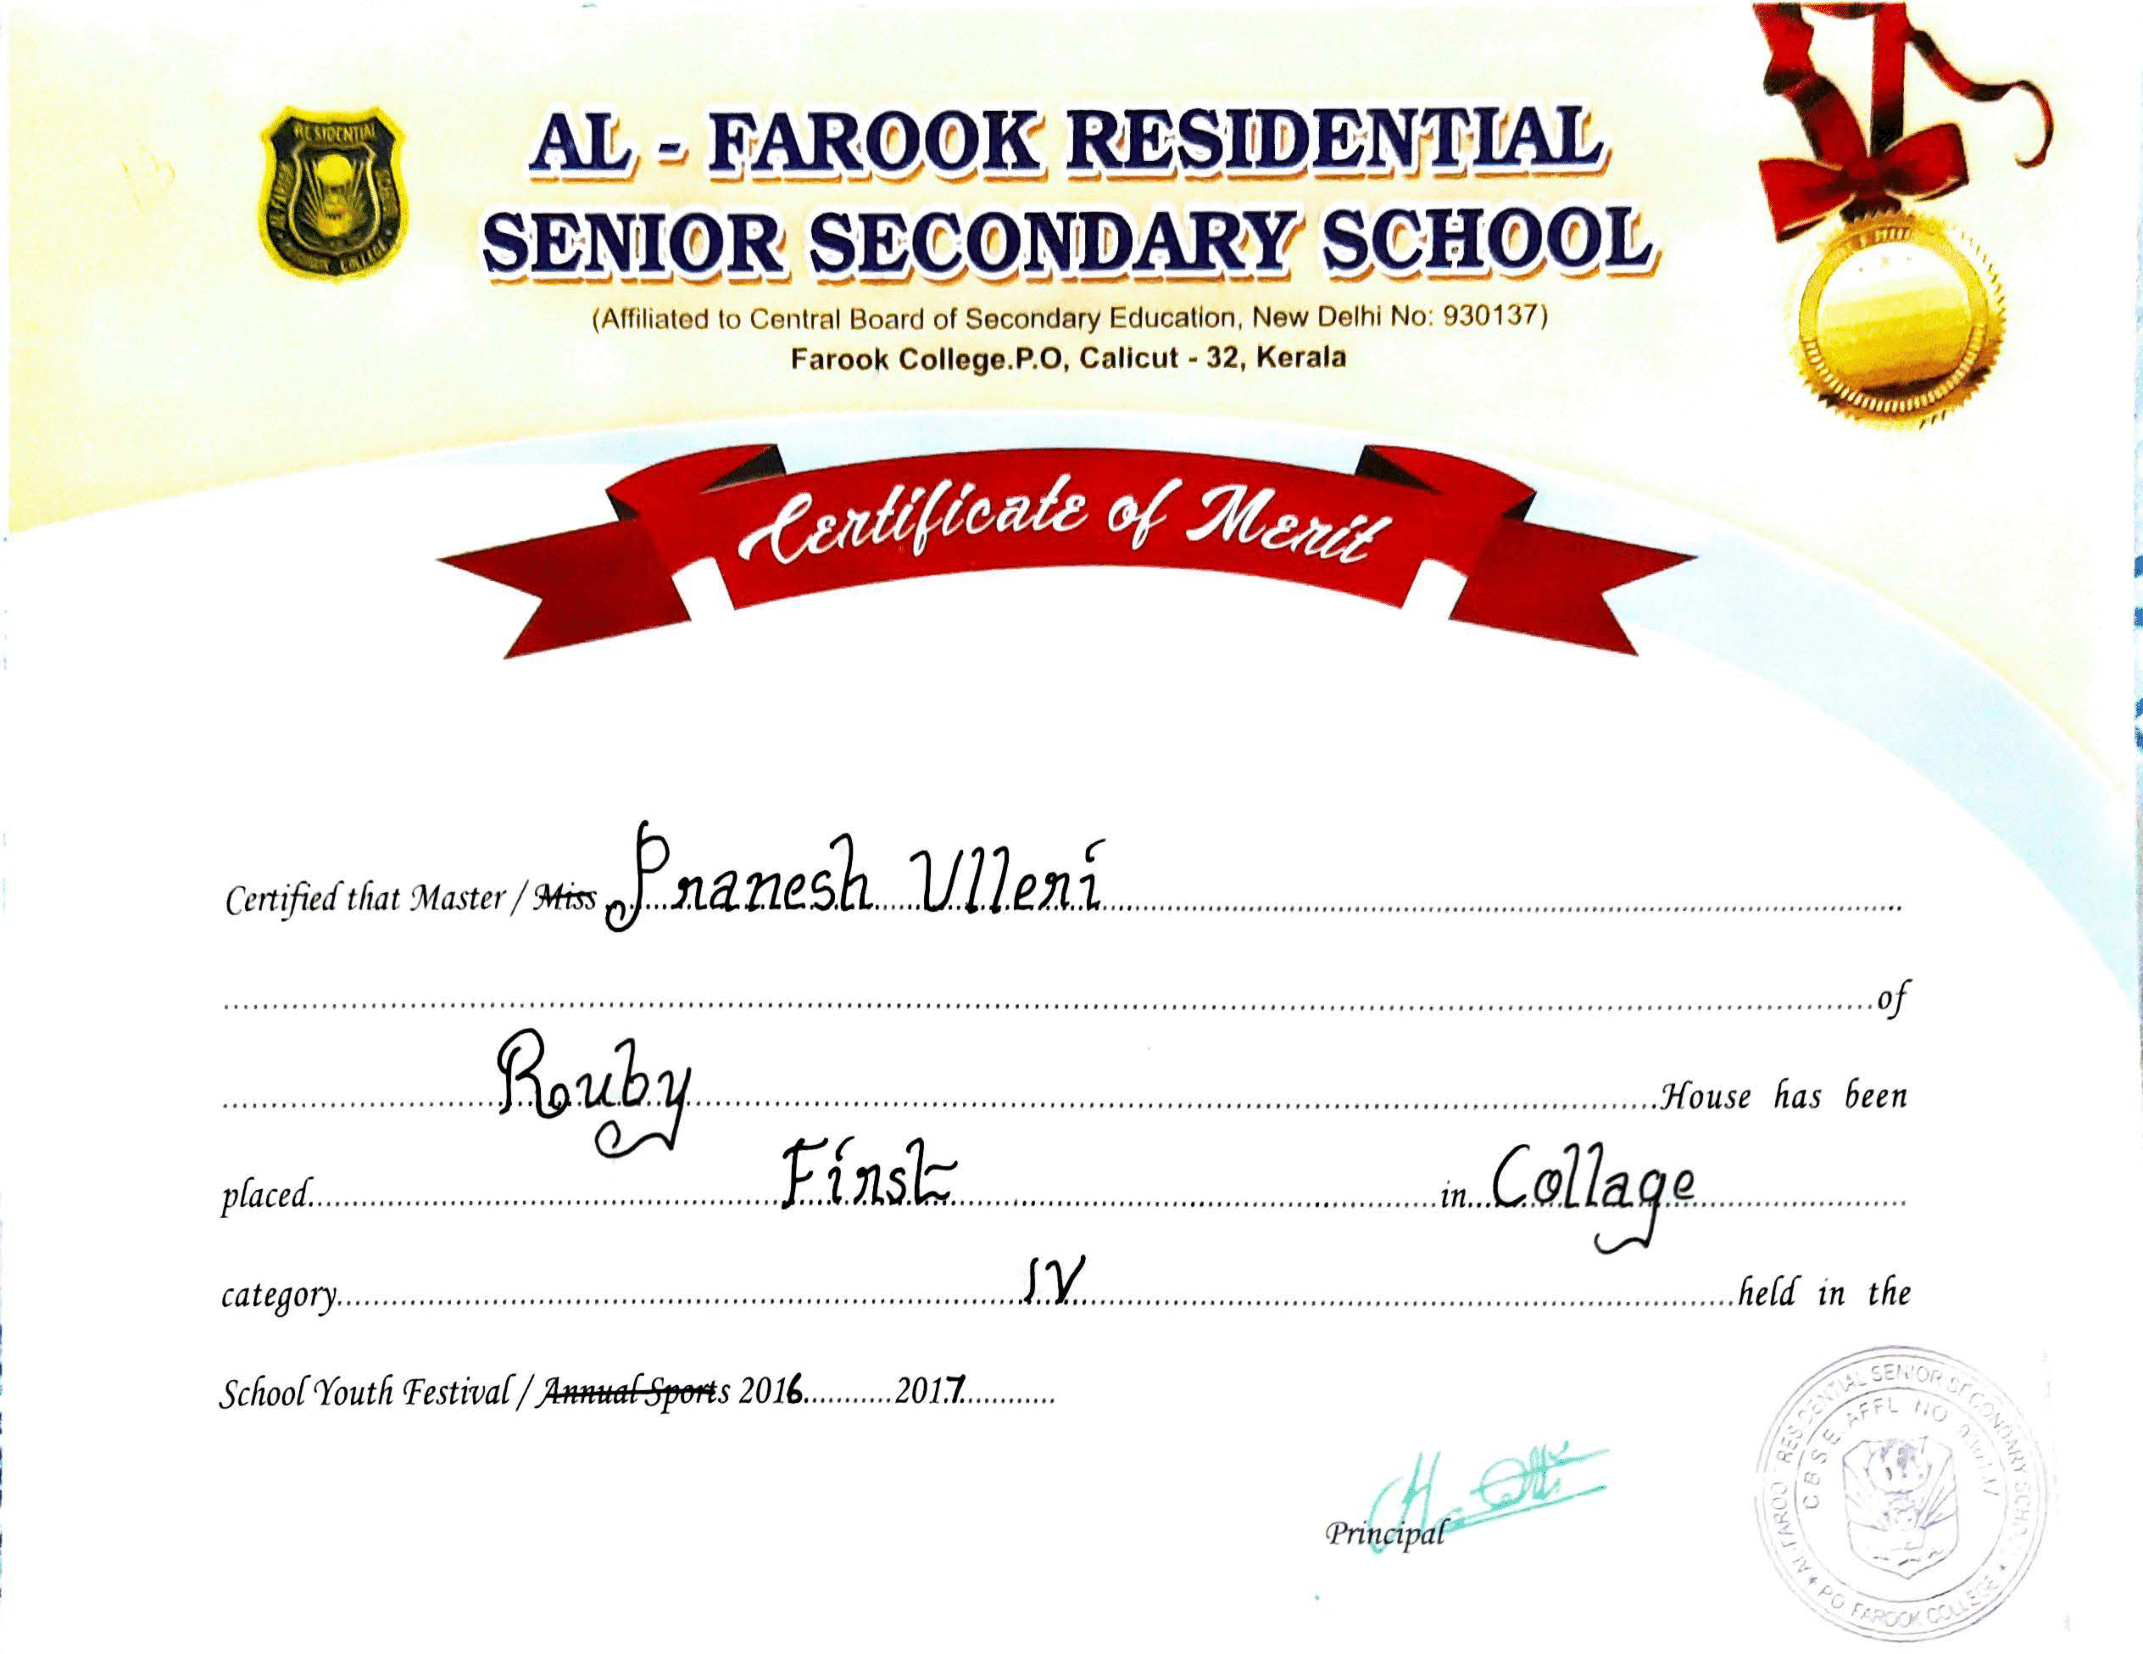 RESIDENTIAL
COLLEGE
AL - FAROOK RESIDENTIAL
SENIOR SECONDARY SCHOOL
(Affiliated to Central Board of Secondary Education, New Delhi No: 930137)
Farook College.P.O, Calicut - 32, Kerala
Certificate of Merit
Certified that Master / Miss Pranesh Ulleri
of
Rouby House has been
placed First in Collage
category IV held in the
School Youth Festival / Annual Sports 2016 2017
Principal
AL-FAROOK RESIDENTIAL SENIOR SECONDARY SCHOOL
CBSE AFFL NO
PO FAROOK COLLEGE